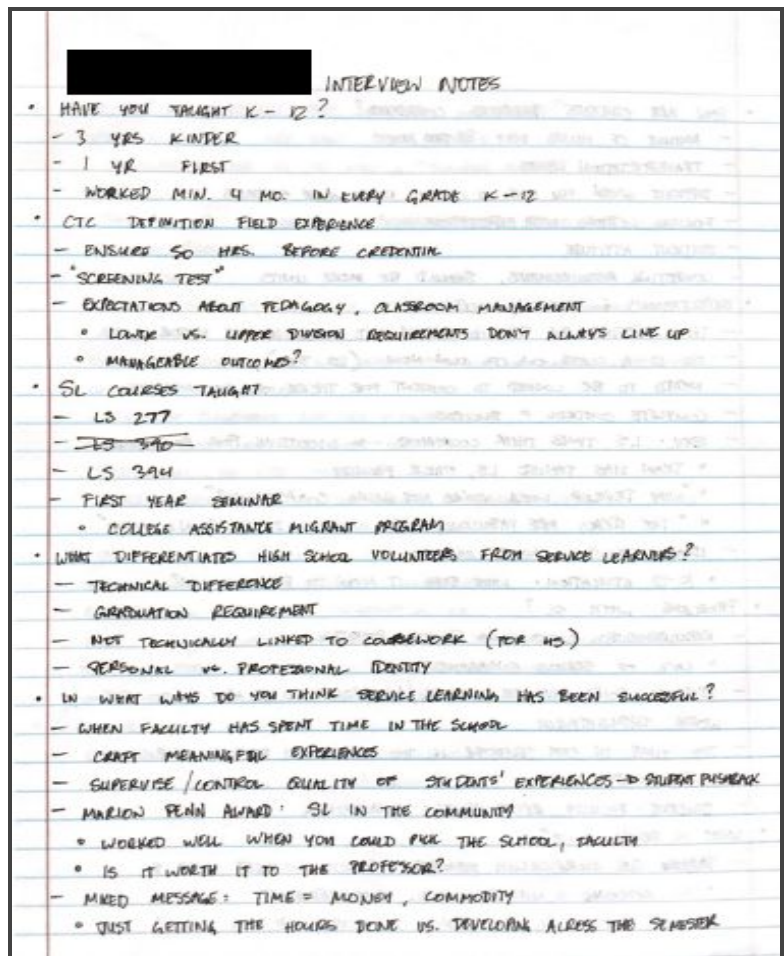 INTERVIEW NOTES
• HAVE YOU TAUGHT K-12?
- 3 YRS KINDER
- 1 YR FIRST
- WORKED MIN. 4 MO. IN EVERY GRADE K-12
• CTC DEFINITION FIELD EXPERIENCE
- ENSURE 50 HRS. BEFORE CREDENTIAL
- "SCREENING TEST"
- EXPECTATIONS ABOUT PEDAGOGY, CLASSROOM MANAGEMENT
• LOWER VS. UPPER DIVISION REQUIREMENTS DON'T ALWAYS LINE UP
• MANAGEABLE OUTCOMES?
• SL COURSES TAUGHT
- LS 277
- LS 390
- LS 394
- FIRST YEAR SEMINAR
• COLLEGE ASSISTANCE MIGRANT PROGRAM
• WHAT DIFFERENTIATED HIGH SCHOOL VOLUNTEERS FROM SERVICE LEARNERS?
- TECHNICAL DIFFERENCE
- GRADUATION REQUIREMENT
- NOT TECHNICALLY LINKED TO COURSEWORK (FOR HS)
- PERSONAL VS. PROFESSIONAL IDENTITY
• IN WHAT WAYS DO YOU THINK SERVICE LEARNING HAS BEEN SUCCESSFUL?
- WHEN FACULTY HAS SPENT TIME IN THE SCHOOL
- CRAFT MEANINGFUL EXPERIENCES
- SUPERVISE/CONTROL QUALITY OF STUDENTS' EXPERIENCES → STUDENT PUSHBACK
- MARION PENN AWARD: SL IN THE COMMUNITY
• WORKED WELL WHEN YOU COULD PICK THE SCHOOL, FACULTY
• IS IT WORTH IT TO THE PROFESSOR?
- MIXED MESSAGE: TIME = MONEY, COMMODITY
• JUST GETTING THE HOURS DONE VS. DEVELOPING ACROSS THE SEMESTER